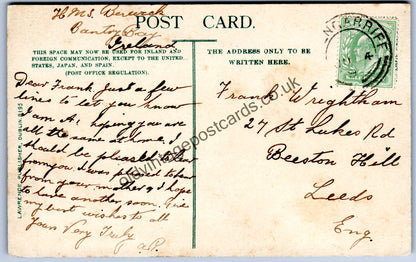 H.M.S. Berwick
Bantry Bay
Ireland
POST CARD.
THIS SPACE MAY NOW BE USED FOR INLAND AND
FOREIGN COMMUNICATION, EXCEPT TO THE UNITED
STATES, JAPAN, AND SPAIN.
(POST OFFICE REGULATION).
THE ADDRESS ONLY TO BE
WRITTEN HERE.
Dear Frank Just a few
lines to let you know
I am A1 hoping you are
all the same at home. I
should be pleased to hear
from you. I was pleased to hear
from your mother & I hope
to have another soon. Give
my best wishes to all
Yours Very Truly
A.P.
Frank Wrightham
27 St Lukes Rd
Beeston Hill
Leeds
Eng.
LAWRENCE, PUBLISHER, DUBLIN
oldvintagepostcards.co.uk